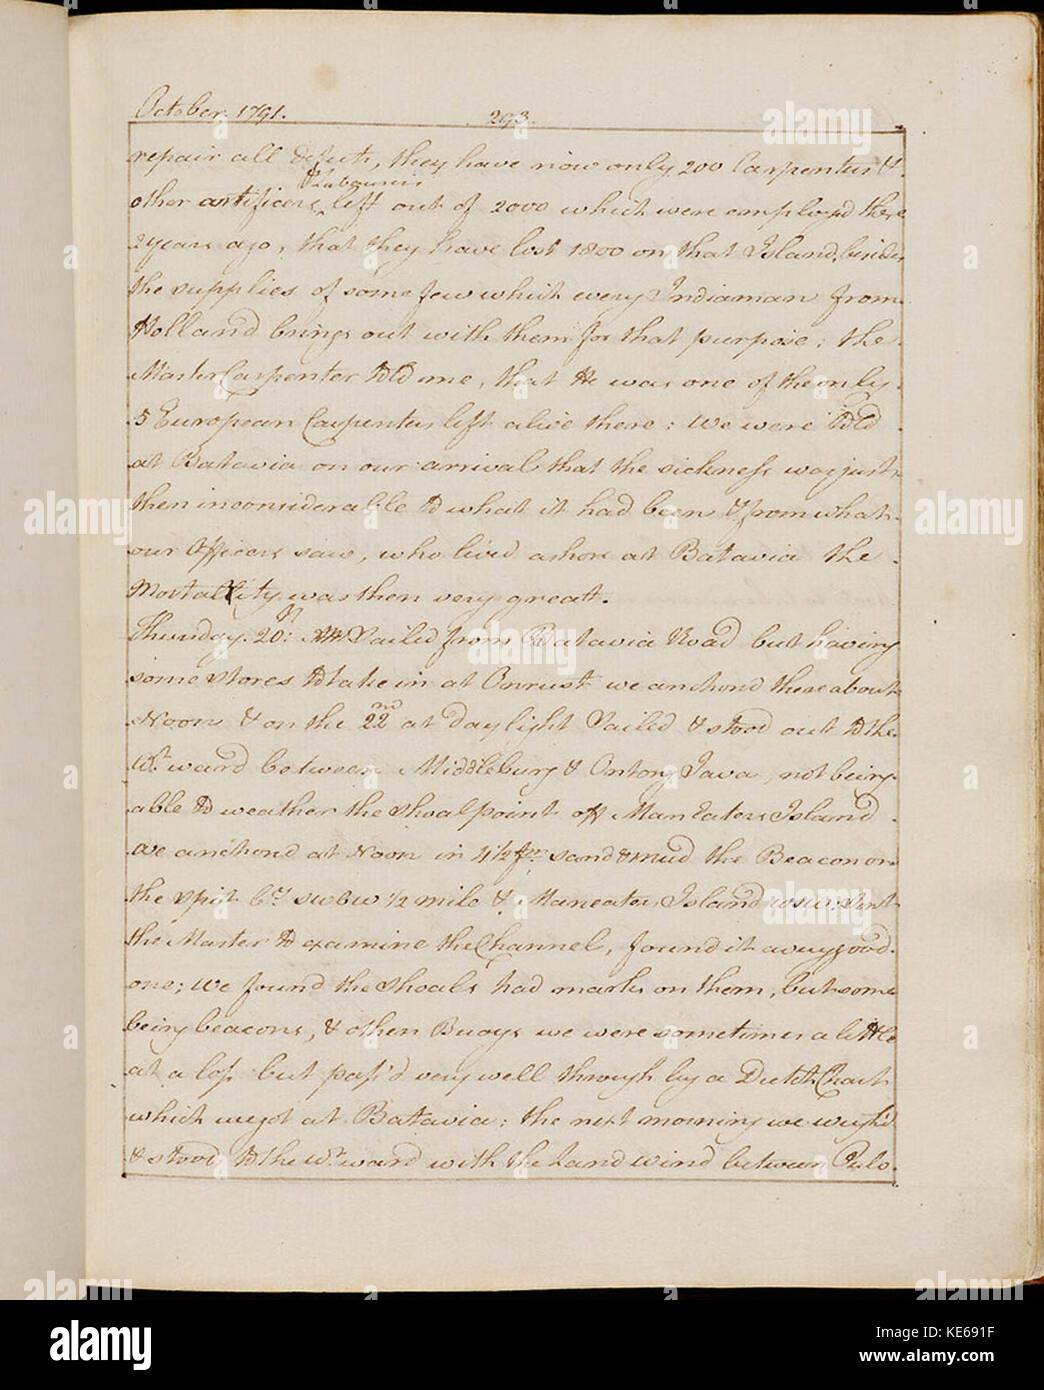 October. 1791.
293.
repair all defects, they have now only 200 Carpenters &
& Labourers
other artificers left out of 2000 which were employed there
2 years ago, that they have lost 1800 on that Island, besides
the supplies of some few which every Indiaman from
Holland brings out with them for that purpose; the
Master Carpenter told me, that He was one of the only
5 European Carpenters left alive there: We were told
at Batavia on our arrival that the sickness was just
then inconsiderable to what it had been & from what
our Officers saw, who lived ashore at Batavia the
Mortality was then very great.
Thursday. 20th. Sailed from Batavia Road but having
some stores to take in at Onrust we anchord there about
Noon & on the 22nd at daylight Sailed & stood out to the
Wt ward between Middleburg & Ontong Java, not being
able to weather the Shoal point off Man Eaters Island
we anchord at Noon in 4½ fm sand & mud the Beacon on
the Spit bg SWbW 1/2 mile & Maneaters Island WSW; Sent
the Master to examine the Channel, found it a very good
one; We found the Shoals had marks on them, but some
being beacons, & others Buoys we were sometimes a little
at a loss but pass'd very well through by a Dutch Chart
which we got at Batavia; the next morning we weigh'd
& stood to the Wt ward with the Land wind between Pulo
alamy
Image ID: KE691F
www.alamy.com